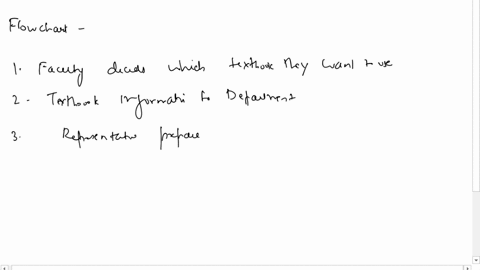 Flowchart -
1. Faculty decides which textbook they want to use
2. Textbook Information to Department
3. Representative prepare